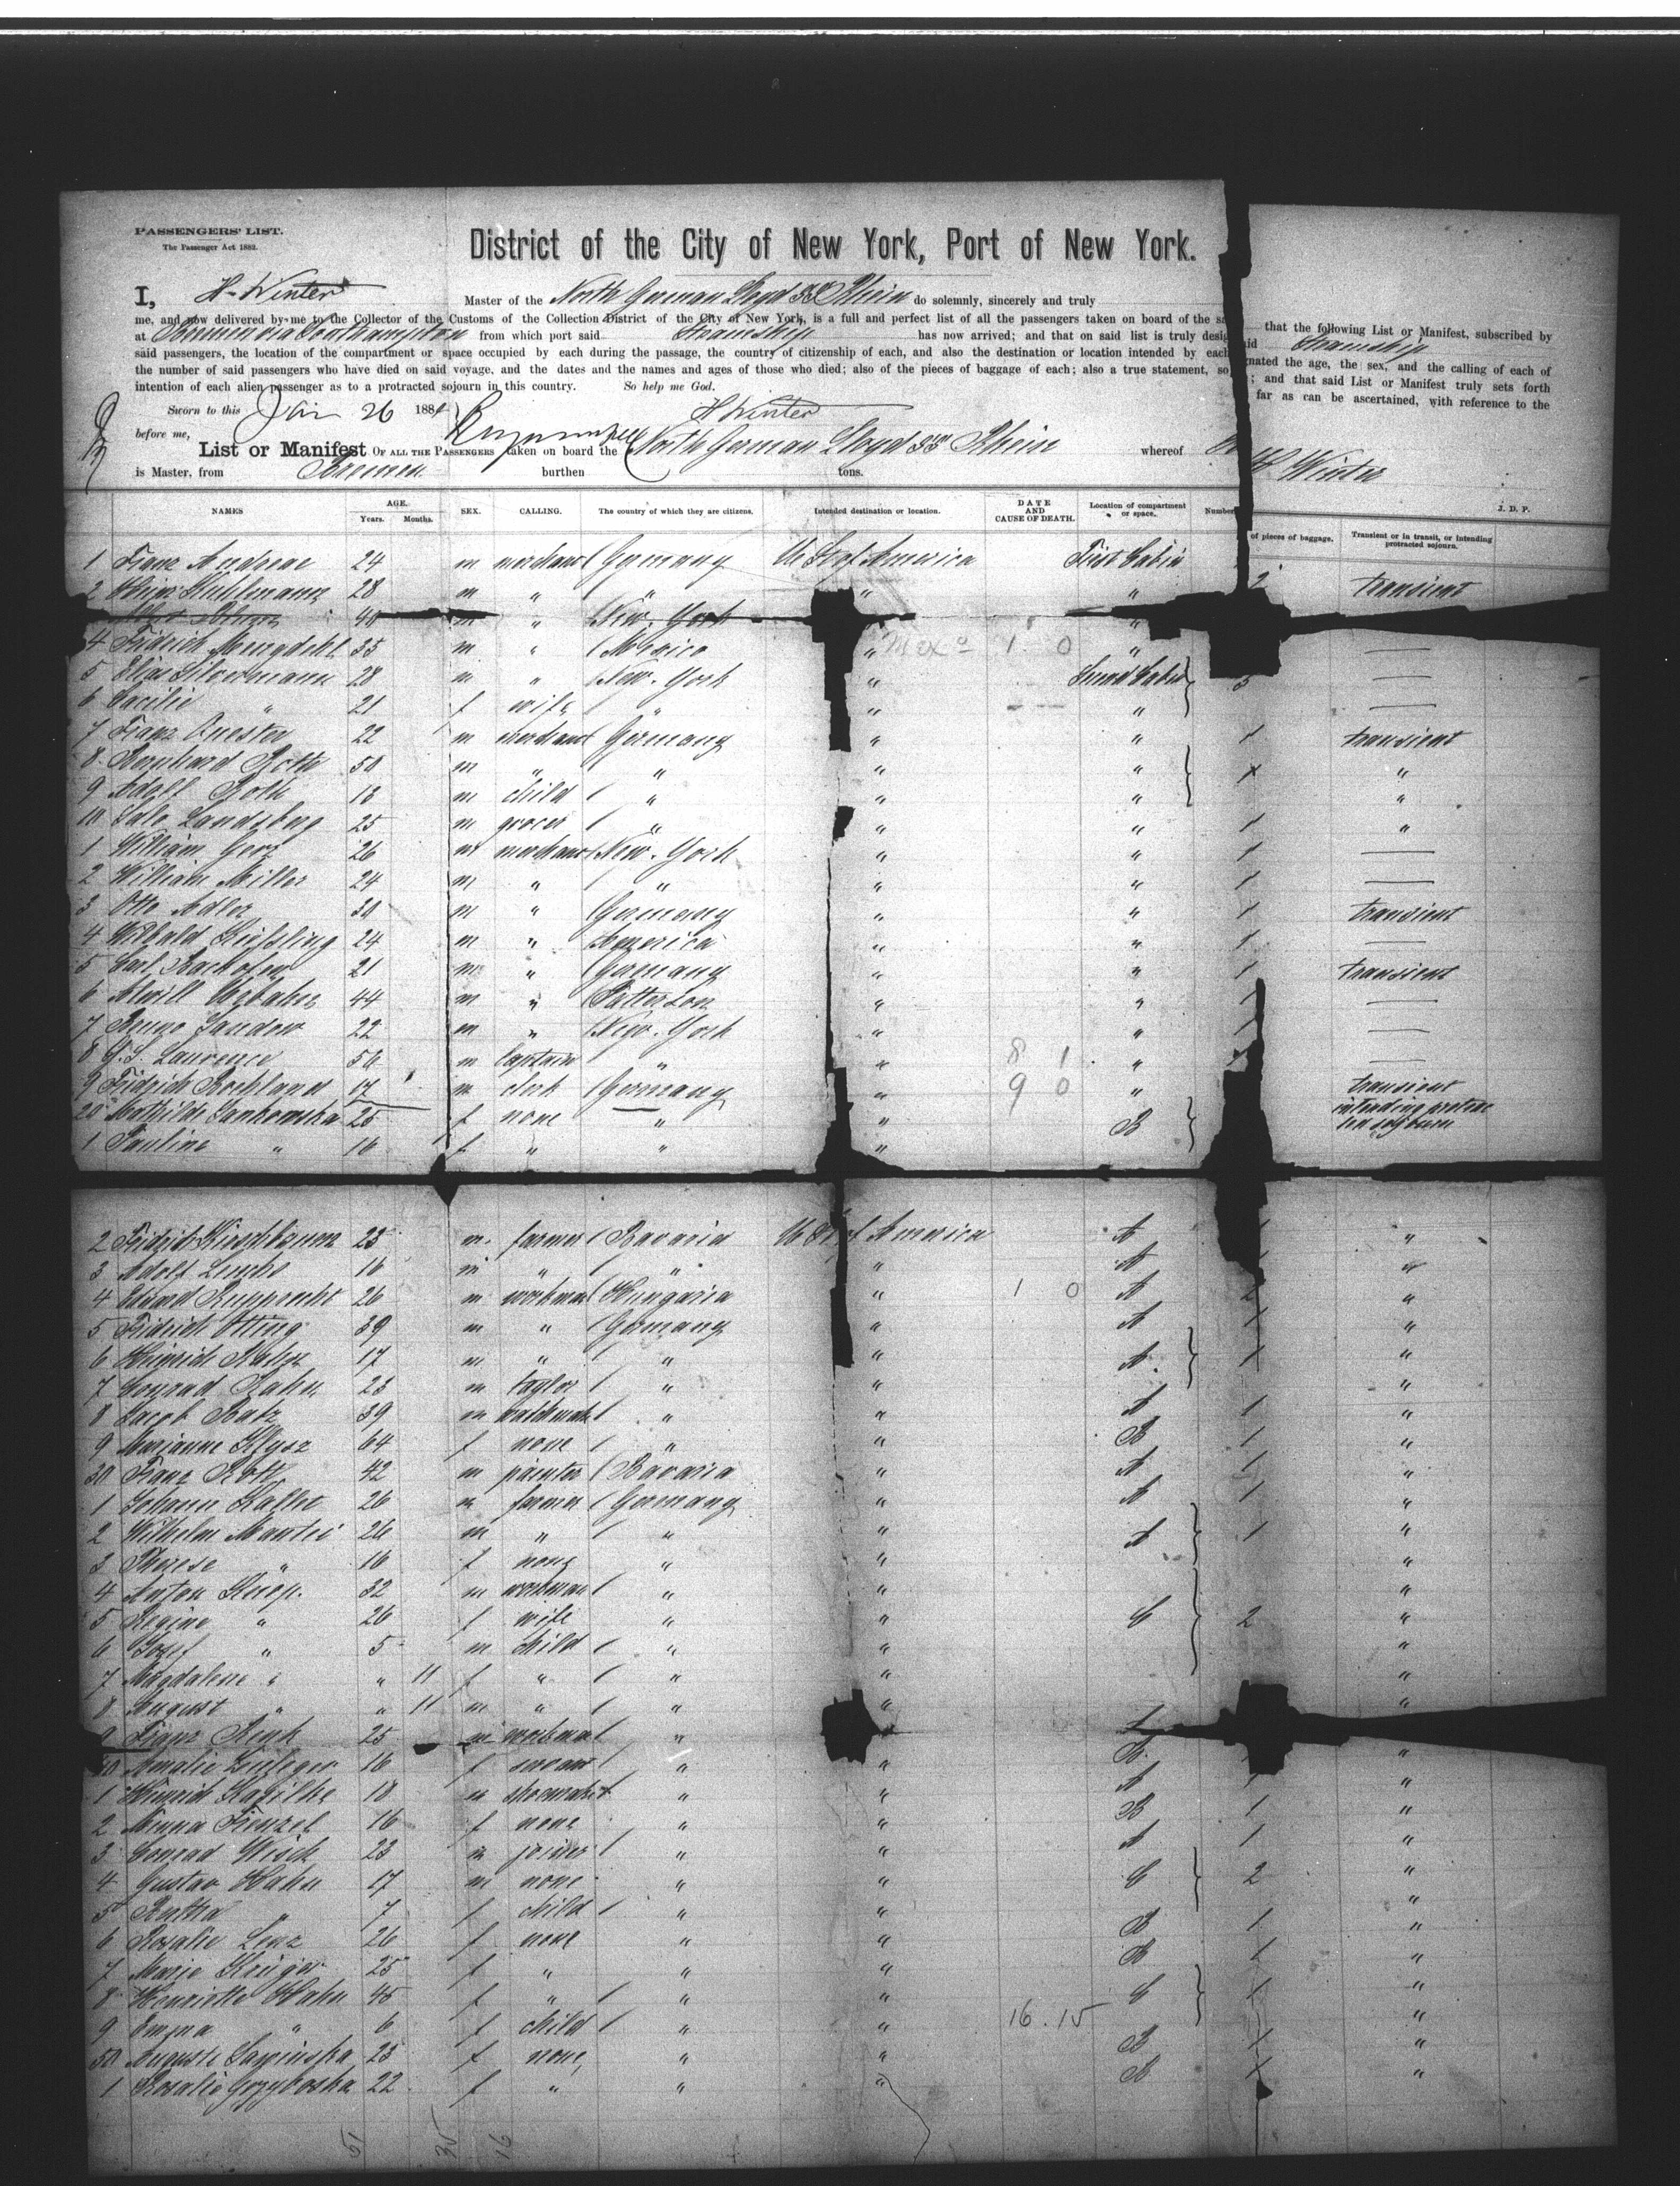 PASSENGERS' LIST.
The Passenger Act 1882.
District of the City of New York, Port of New York.
I, H. Winter Master of the North German Lloyd SS Rhein do solemnly, sincerely and truly that the following List or Manifest, subscribed by
me, and now delivered by me to the Collector of the Customs of the Collection District of the City of New York, is a full and perfect list of all the passengers taken on board of the said Steamship
at Bremen via Southampton from which port said Steamship has now arrived; and that on said list is truly designated the age, the sex, and the calling of each of
said passengers, the location of the compartment or space occupied by each during the passage, the country of citizenship of each, and also the destination or location intended by each; and that said List or Manifest truly sets forth
the number of said passengers who have died on said voyage, and the dates and the names and ages of those who died; also of the pieces of baggage of each; also a true statement, so far as can be ascertained, with reference to the
intention of each alien passenger as to a protracted sojourn in this country. So help me God.
Sworn to this Jan 26 1884 H Winter
before me,
List or Manifest OF ALL THE PASSENGERS taken on board the North German Lloyd SS Rhein whereof H Winter
is Master, from Bremen burthen tons.
J. D. P.
NAMES AGE. Years. Months. SEX. CALLING. The country of which they are citizens. Intended destination or location. DATE AND CAUSE OF DEATH. Location of compartment or space. Number of pieces of baggage. Transient or in transit, or intending protracted sojourn.
1 Franz Andreae 24 m merchant Germany U St of America First Cabin 2 transient
2 Heinr Kuhlmann 28 m " " " "
40 m " New York "
4 Fridrich Mengdehl 35 m " Mexico " Mexo 1 0 " —
5 Elias Silvermann 28 m " New York " Second Cabin 3 —
6 Cacilie " 21 f wife " " " —
7 Franz Quester 22 m merchant Germany " " 1 transient
8 Bernhard Roth 50 m " " " " "
9 Adolf Roth 13 m child " " " "
10 Sale Landsberg 25 m grocer " " " 1 "
1 William Gerz 26 m merchant New York " " 1 —
2 William Miller 24 m " " " " 1 —
3 Otto Adler 30 m " Germany " " 1 transient
4 Wilbald Kiessling 24 m " America " " 1 —
5 Carl Bachofen 21 m " Germany " " 1 transient
6 44 m " Patterson " " 1 —
7 Bruno Sandow 22 m " New York " " 1 —
8 Laurence 50 m Captain " " 8 1 " —
9 Fridrich Rochland 17 m clerk Germany " 9 0 " transient
20 Mathilde Jankowska 25 f none " " B intending protracted sojourn
1 Pauline " 16 f " " "
2 Fridrich Kirschbaum 23 m farmer Bavaria U St of America A 1 "
3 Adolf Lesche 16 m " " " A "
4 Eduard Rupprecht 26 m workman Hungaria " 1 0 A 2 "
5 Fridrich Otting 39 m " Germany " A 1 "
6 Heinrich 17 m " " " A 1 "
7 Conrad Zahn 23 m taylor " " "
8 Jacob Batz 39 m watchmak " " A 1 "
9 Marianne 64 f none " " B 1 "
30 Franz Roth 42 m painter Bavaria " A 1 "
1 Johann 26 m farmer Germany " A 1 "
2 Wilhelm Mantei 26 m " " " A 1 "
3 Therese " 16 f none " " "
4 Anton Knop 32 m workman " " "
5 Regine " 26 f wife " " C 2 "
6 Josef " 5 m child " " "
7 Magdalene " " 11 f " " " "
8 August " " 11 m " " " "
9 Franz Renk 25 m workman " "
40 Amalie 16 f servant " " B "
1 Heinrich 18 m shoemaker " " A 1 "
2 Minna Frenzel 16 f none " " B 1 "
3 Conrad Wisch 23 m joiner " " A 1 "
4 Gustav Hahn 17 m none " " C 2 "
5 Bertha " 7 f child " " "
6 Rosalie Lenz 26 f none " " B 1 "
7 Marie Krüger 25 f " " " B 1 "
8 Henriette Hahn 45 f " " " C 1 "
9 Emma " 6 f child " " 16.15 "
50 Auguste Sawinska 23 f none " " B 1 "
1 Rosalie Grzyboska 22 f " " " B 1 "
51 35 16